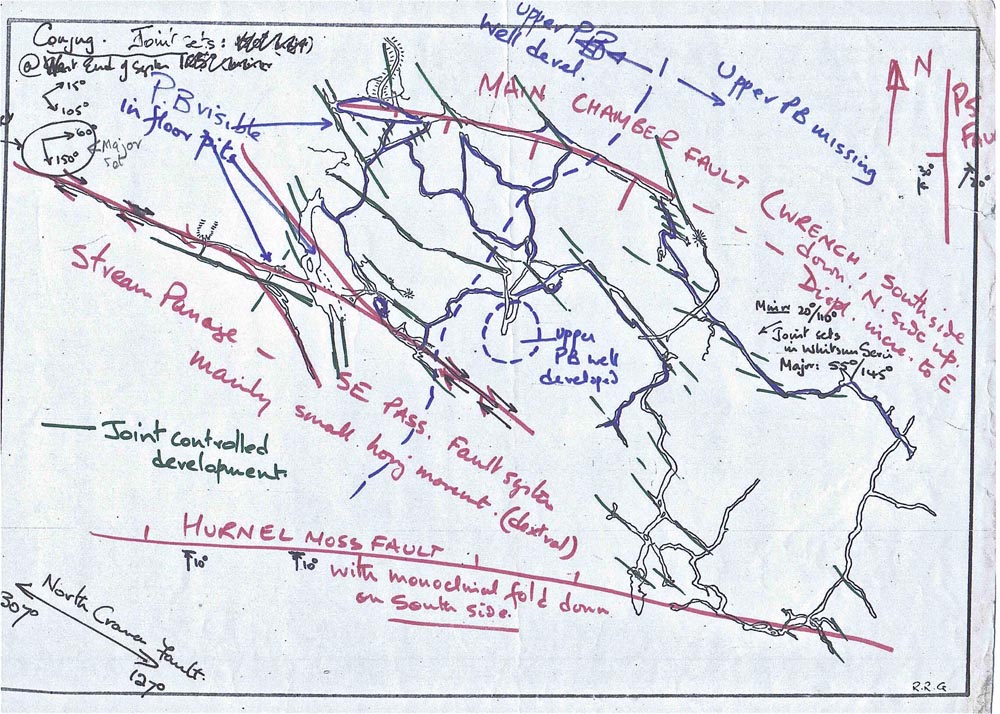 Conjug. Joint sets:
@ West End of System
15°
105°
60°
150°
Major
set
PB visible
in floor pits
Upper PB
well devel.
Upper PB missing
N
MAIN CHAMBER FAULT (WRENCH, South side
down. N. side up.
Displ. incre. to E
10°
20°
Main 20°/110°
Joint sets
in Whitsun Series
Major: 55°/145°
upper
PB well
developed
Stream Passage –
mainly small horiz. movement. (dextral)
SE PASS. Fault system
Joint controlled
development.
HURNEL MOSS FAULT
10°
10°
with monoclinal fold down
on South side.
North Craven Fault.
307°
127°
R.R.G.